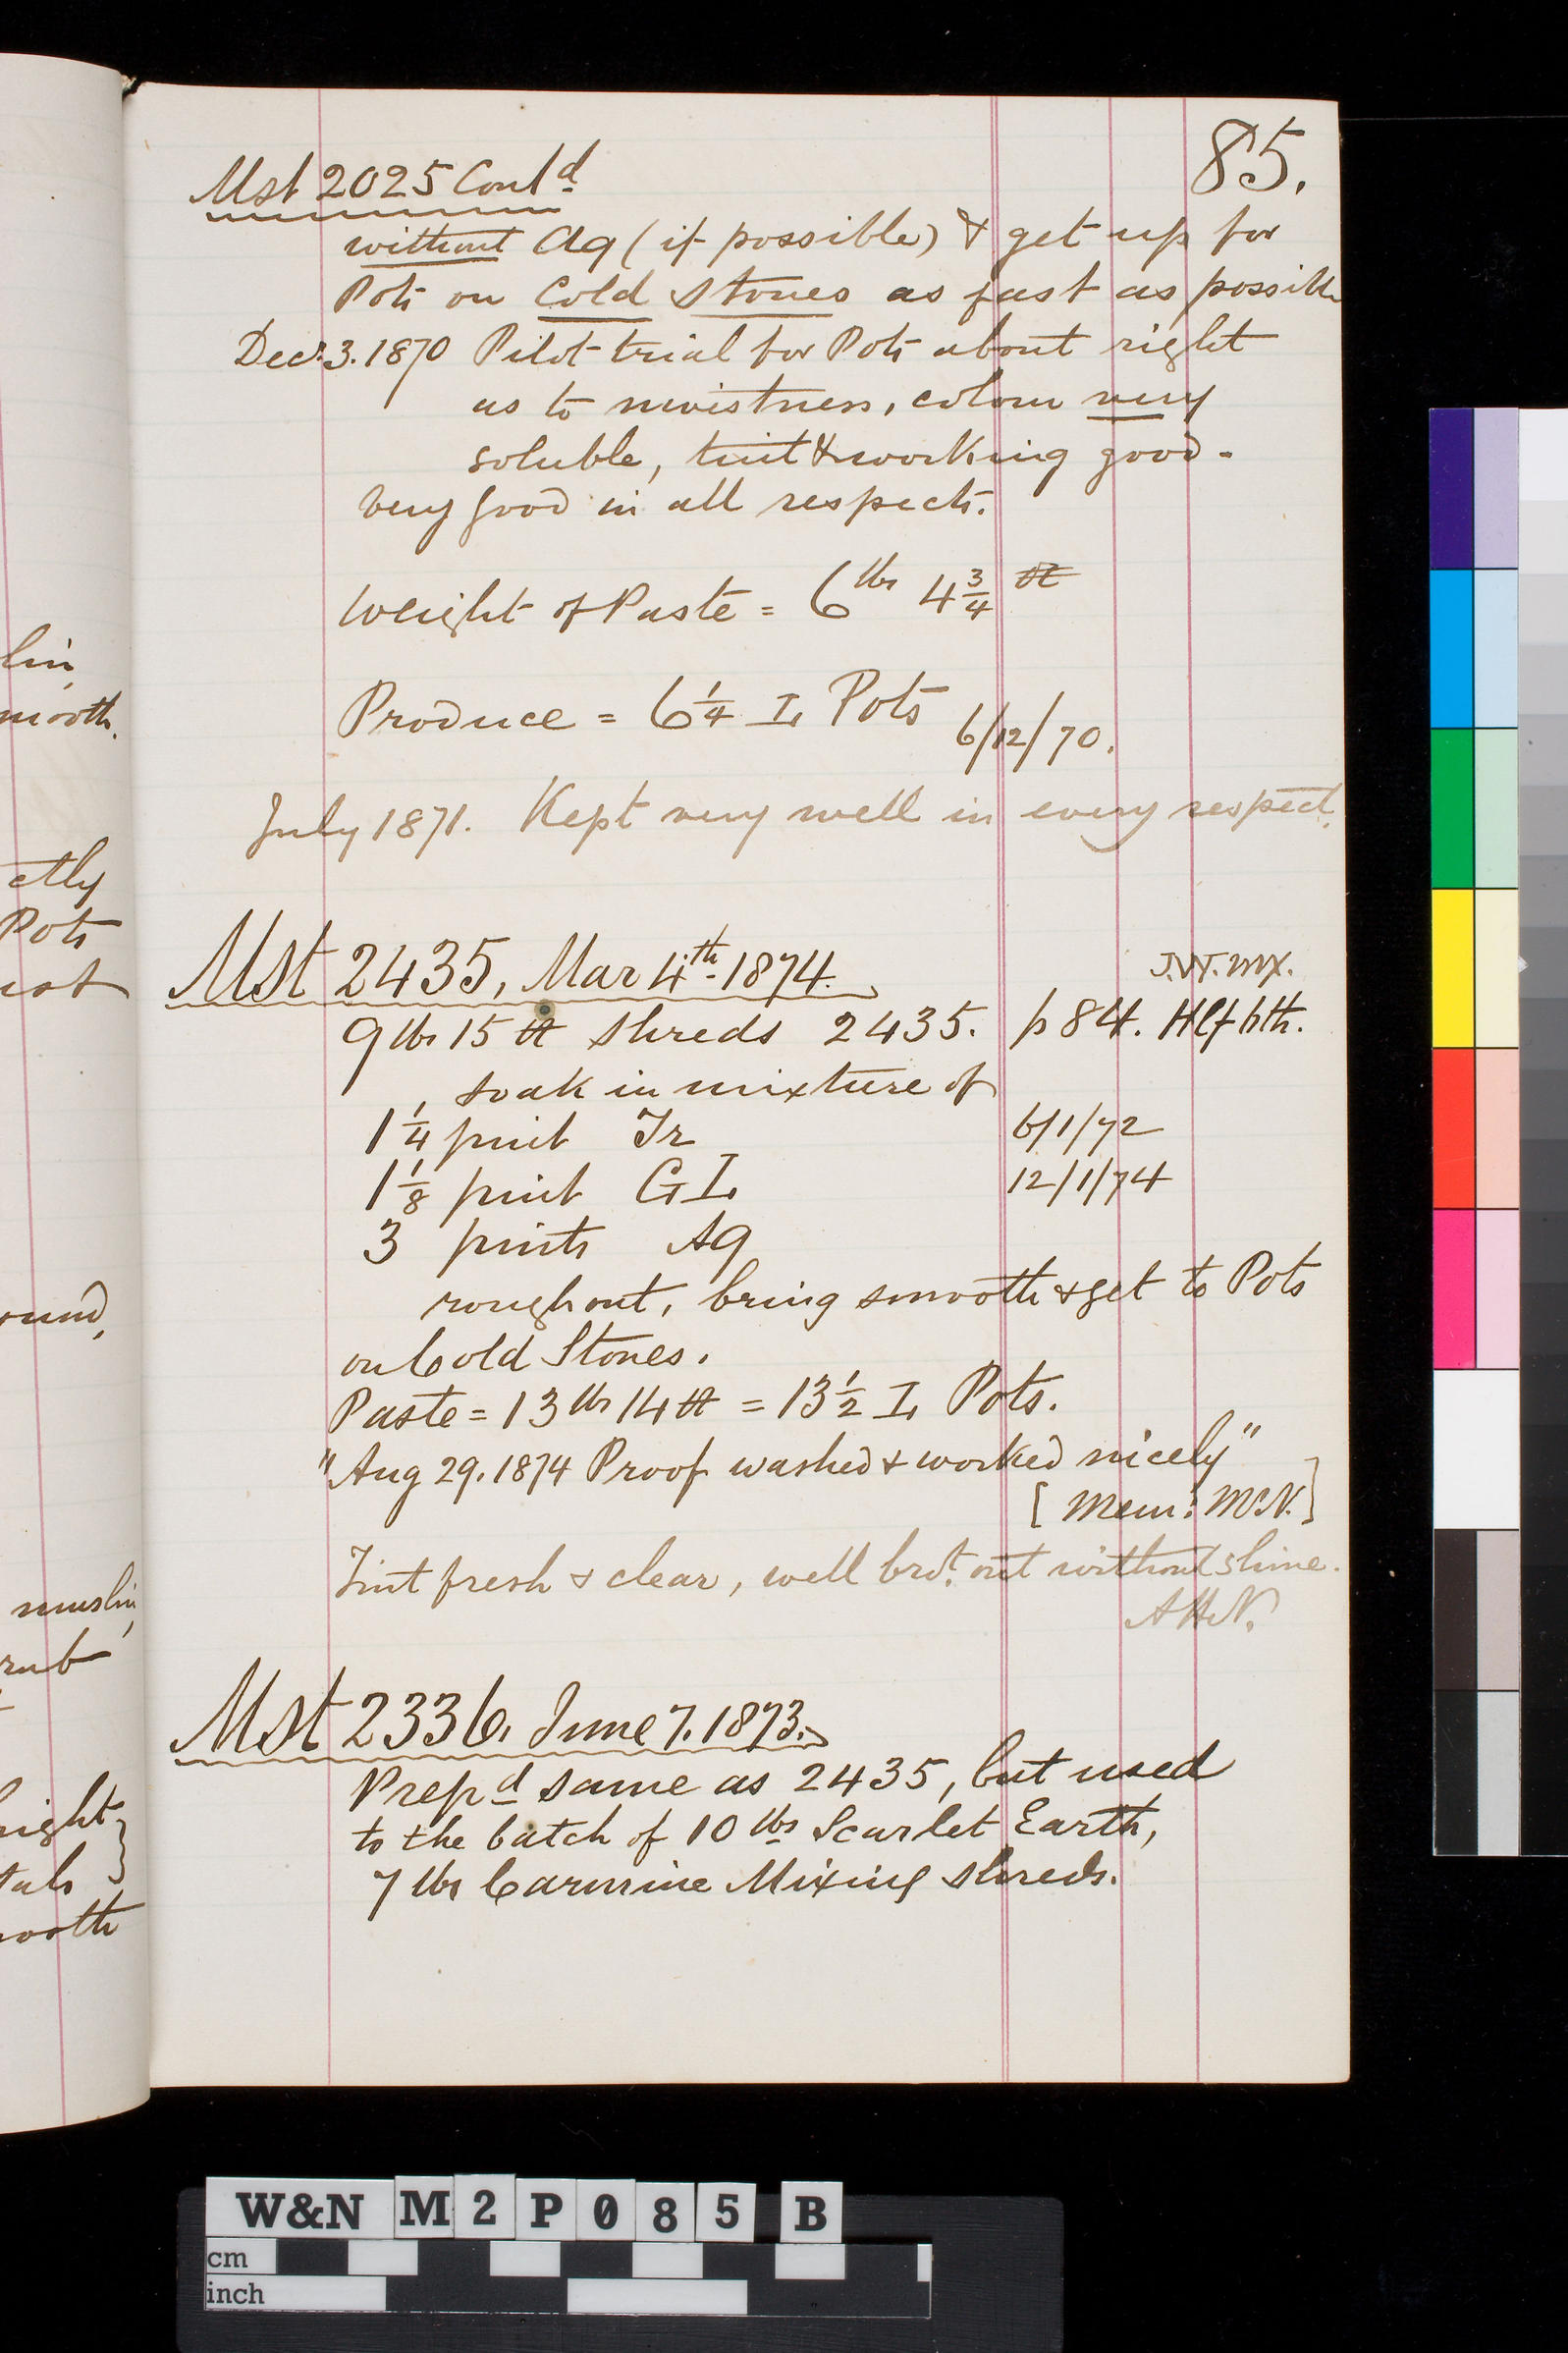 85.
Mst 2025 Contd
without Aq (if possible) & get up for
Pots on Cold Stones as fast as possible
Decr. 3. 1870 Pilot trial for Pots about right
as to moistness, colour very
soluble, tint & working good -
Very good in all respects.
Weight of Paste = 6 lbs 4 3/4
Produce = 6 1/4 I, Pots 6/12/70.
July 1871. Kept very well in every respect.
Mst 2435, Mar 4th 1874.
9 lbs 15 shreds 2435. p 84. Hlf bth.
soak in mixture of
1 1/4 pint Tr 6/1/72
1 1/8 pint GI, 12/1/74
3 pints Aq
rough out, bring smooth & get to Pots
on Cold Stones.
Paste = 13 lbs 14 = 13 1/2 I, Pots.
"Aug 29. 1874 Proof washed & worked nicely"
[Mem: McN.]
Tint fresh & clear, well brot. out without shine.
AHN.
Mst 2336, June 7. 1873.
Prepd same as 2435, but used
to the batch of 10 lbs Scarlet Earth,
7 lbs Carmine Mixing shreds.
lin,
mooth.
ctly
Pots
ound,
muslin,
rub
ight
ooth
W&N M2P085 B
cm
inch